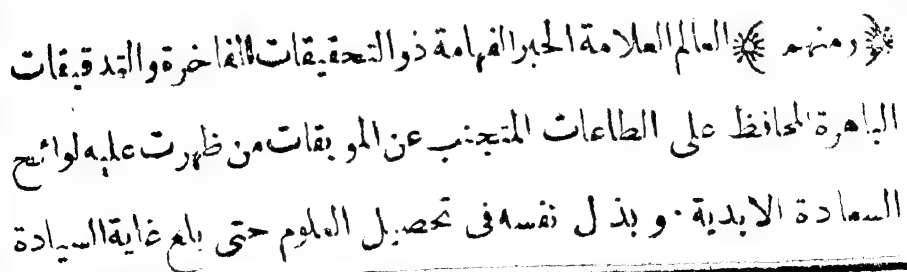 ﴿ومنهم﴾ العالم العلامة الحبر الفهامة ذو التحقيقات الفاخرة والتدقيقات
الباهرة المحافظ على الطاعات المتجنب عن الموبقات من ظهرت عليه لوائح
السعادة الابدية · وبذل نفسه فى تحصيل العلوم حتى بلغ غاية السيادة